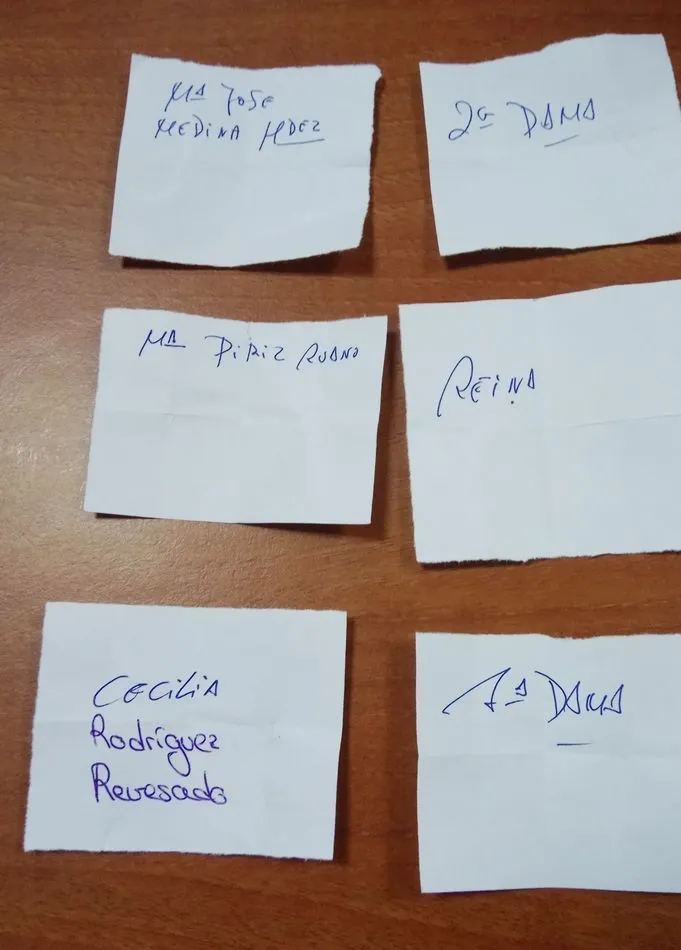 Mª JOSE
MEDINA MDEZ
2ª DAMA
Mª PIRIZ RUANO
REINA
CECILIA
Rodríguez
Revesado
1ª DAMA